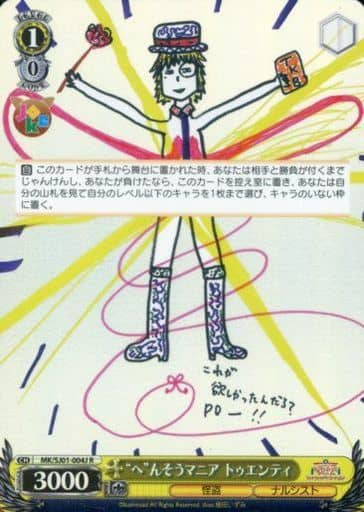 1
0
自 このカードが手札から舞台に置かれた時、あなたは相手と勝負が付くまで
じゃんけんし、あなたが負けたなら、このカードを控え室に置き、あなたは自
分の山札を見て自分のレベル以下のキャラを1枚まで選び、キャラのいない枠
に置く。
これが
欲しかったんだろ?
PO ー!!
CH MK/SJ01-004J R
"へ"んそうマニア トゥエンティ
3000
怪盗
ナルシスト